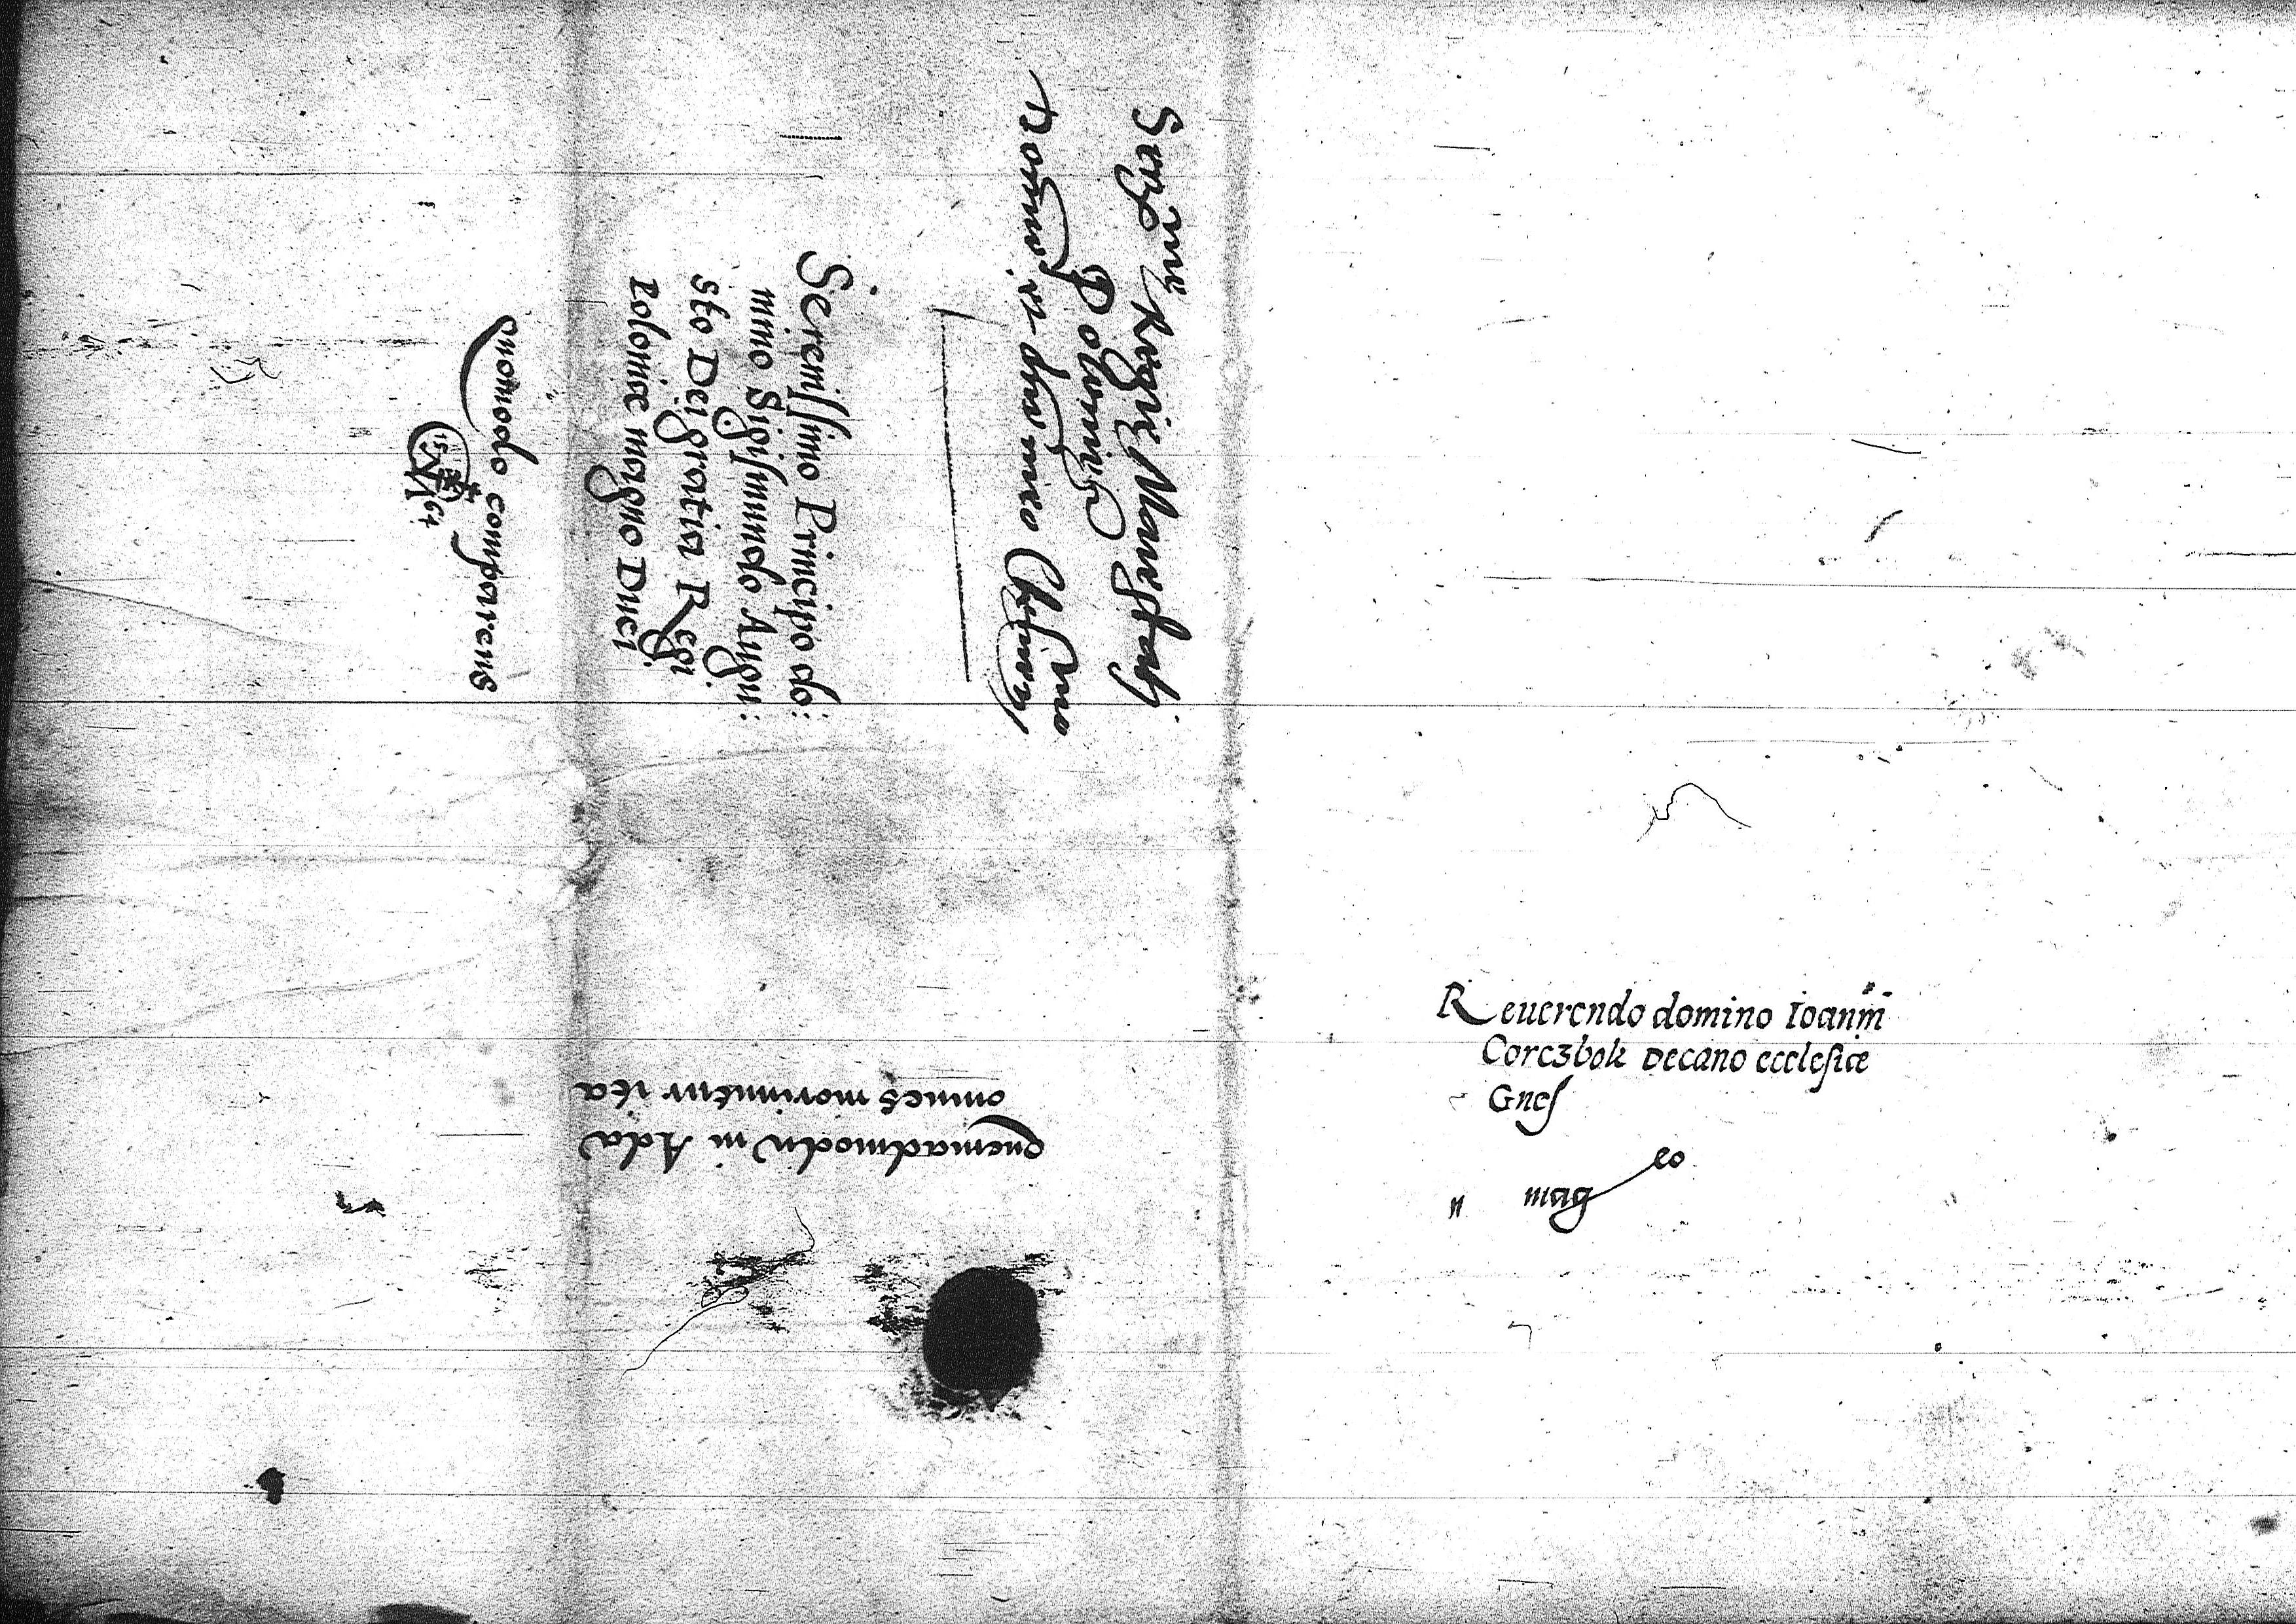 Regie Maiestatis
Polonie
domino domino meo Clementissimo
Serenissimo Principo do:
mino Sigismundo Augu:
sto Dei gratia Regi
Poloniæ magno Duci
Quonodo comparemus
15 64
Quemadmodū in Ada
omnes morimutur ita
Reuerendo domino Ioanni
Corczbok Decano ecclesiæ
Gnes
" mag eo